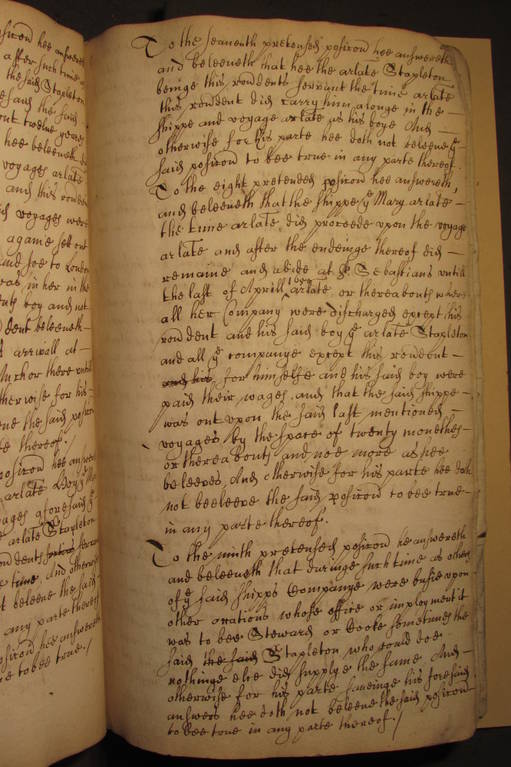 hee answereth
after such time
the said Stapleton
the said
out twelve yeares
hee beleeveth
voyages arlate
and this rondent
voyages were
againe sett out
and soe to London
was in her in the
boy and not
dent beleeveth
arrivall at
Anchor there untill
therwise for his
the said positon
thereof./
positon hee answereth
arlate Boy
ages aforesaid
arlate Stapleton
dent servant
time and otherwise
beleeve the said
any parte thereof
positon hee answereth
to bee true./
To the seaventh pretensed positon hee answereth
and beleeveth that hee the arlate Stapleton
beinge this rondents servant the time arlate
this rondent did carry him alonge in the
shippe and voyage arlate as his boye And
otherwise for his parte hee doth not beleeve ye
said positon to bee true in any parte thereof
To the eight pretended positon hee answereth,
and beleeveth that the shippe ye Mary arlate
the time arlate did proceede upon the voyage
arlate and after the endinge thereof did
remaine and abide at St Sebastians untill
the last of Aprill 1650 arlate or thereabouts where
all her Company were discharged except this
rondent and his said boy ye arlate Stapleton
and all ye companye except this rondent
and his for himselfe and his said boy were
paid their wages and that the said shippe
was out upon the said last mentioned
voyages by the space of twenty monethes
or thereabouts and noe more as hee
beleeves And otherwise for his parte hee doth
not beeleeve the said positon to bee true
in any parte thereof.
To the ninth pretensed positon he answereth
and beleeveth that duringe such time as others
of ye said shipps Companye were busie upon
other occations whose office or imployment it
was to bee Steward or Cooke sometimes the
said the said Stapleton who could doe
nothinge else did supply the same And
otherwise for his parte saveinge his foresaid
answers hee doth not beleeve the said positon
to bee true in any parte thereof./